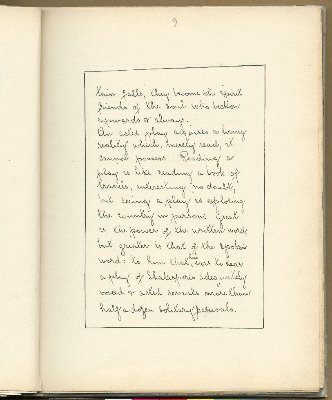 9
tain falls, they become the spirit
friends of the soul who beckon
upwards & always.
An acted play acquires a living
reality which, merely read, it
cannot possess. Reading a
play is like reading a book of
travels, interesting no doubt,
but seeing a play is exploring
the country in person. Great
is the power of the written word
but greater is that of the spoken
word: to him that has ears to hear
a play of Shakespeare adequately
voiced & acted reveals more than
half a dozen solitary perusals.